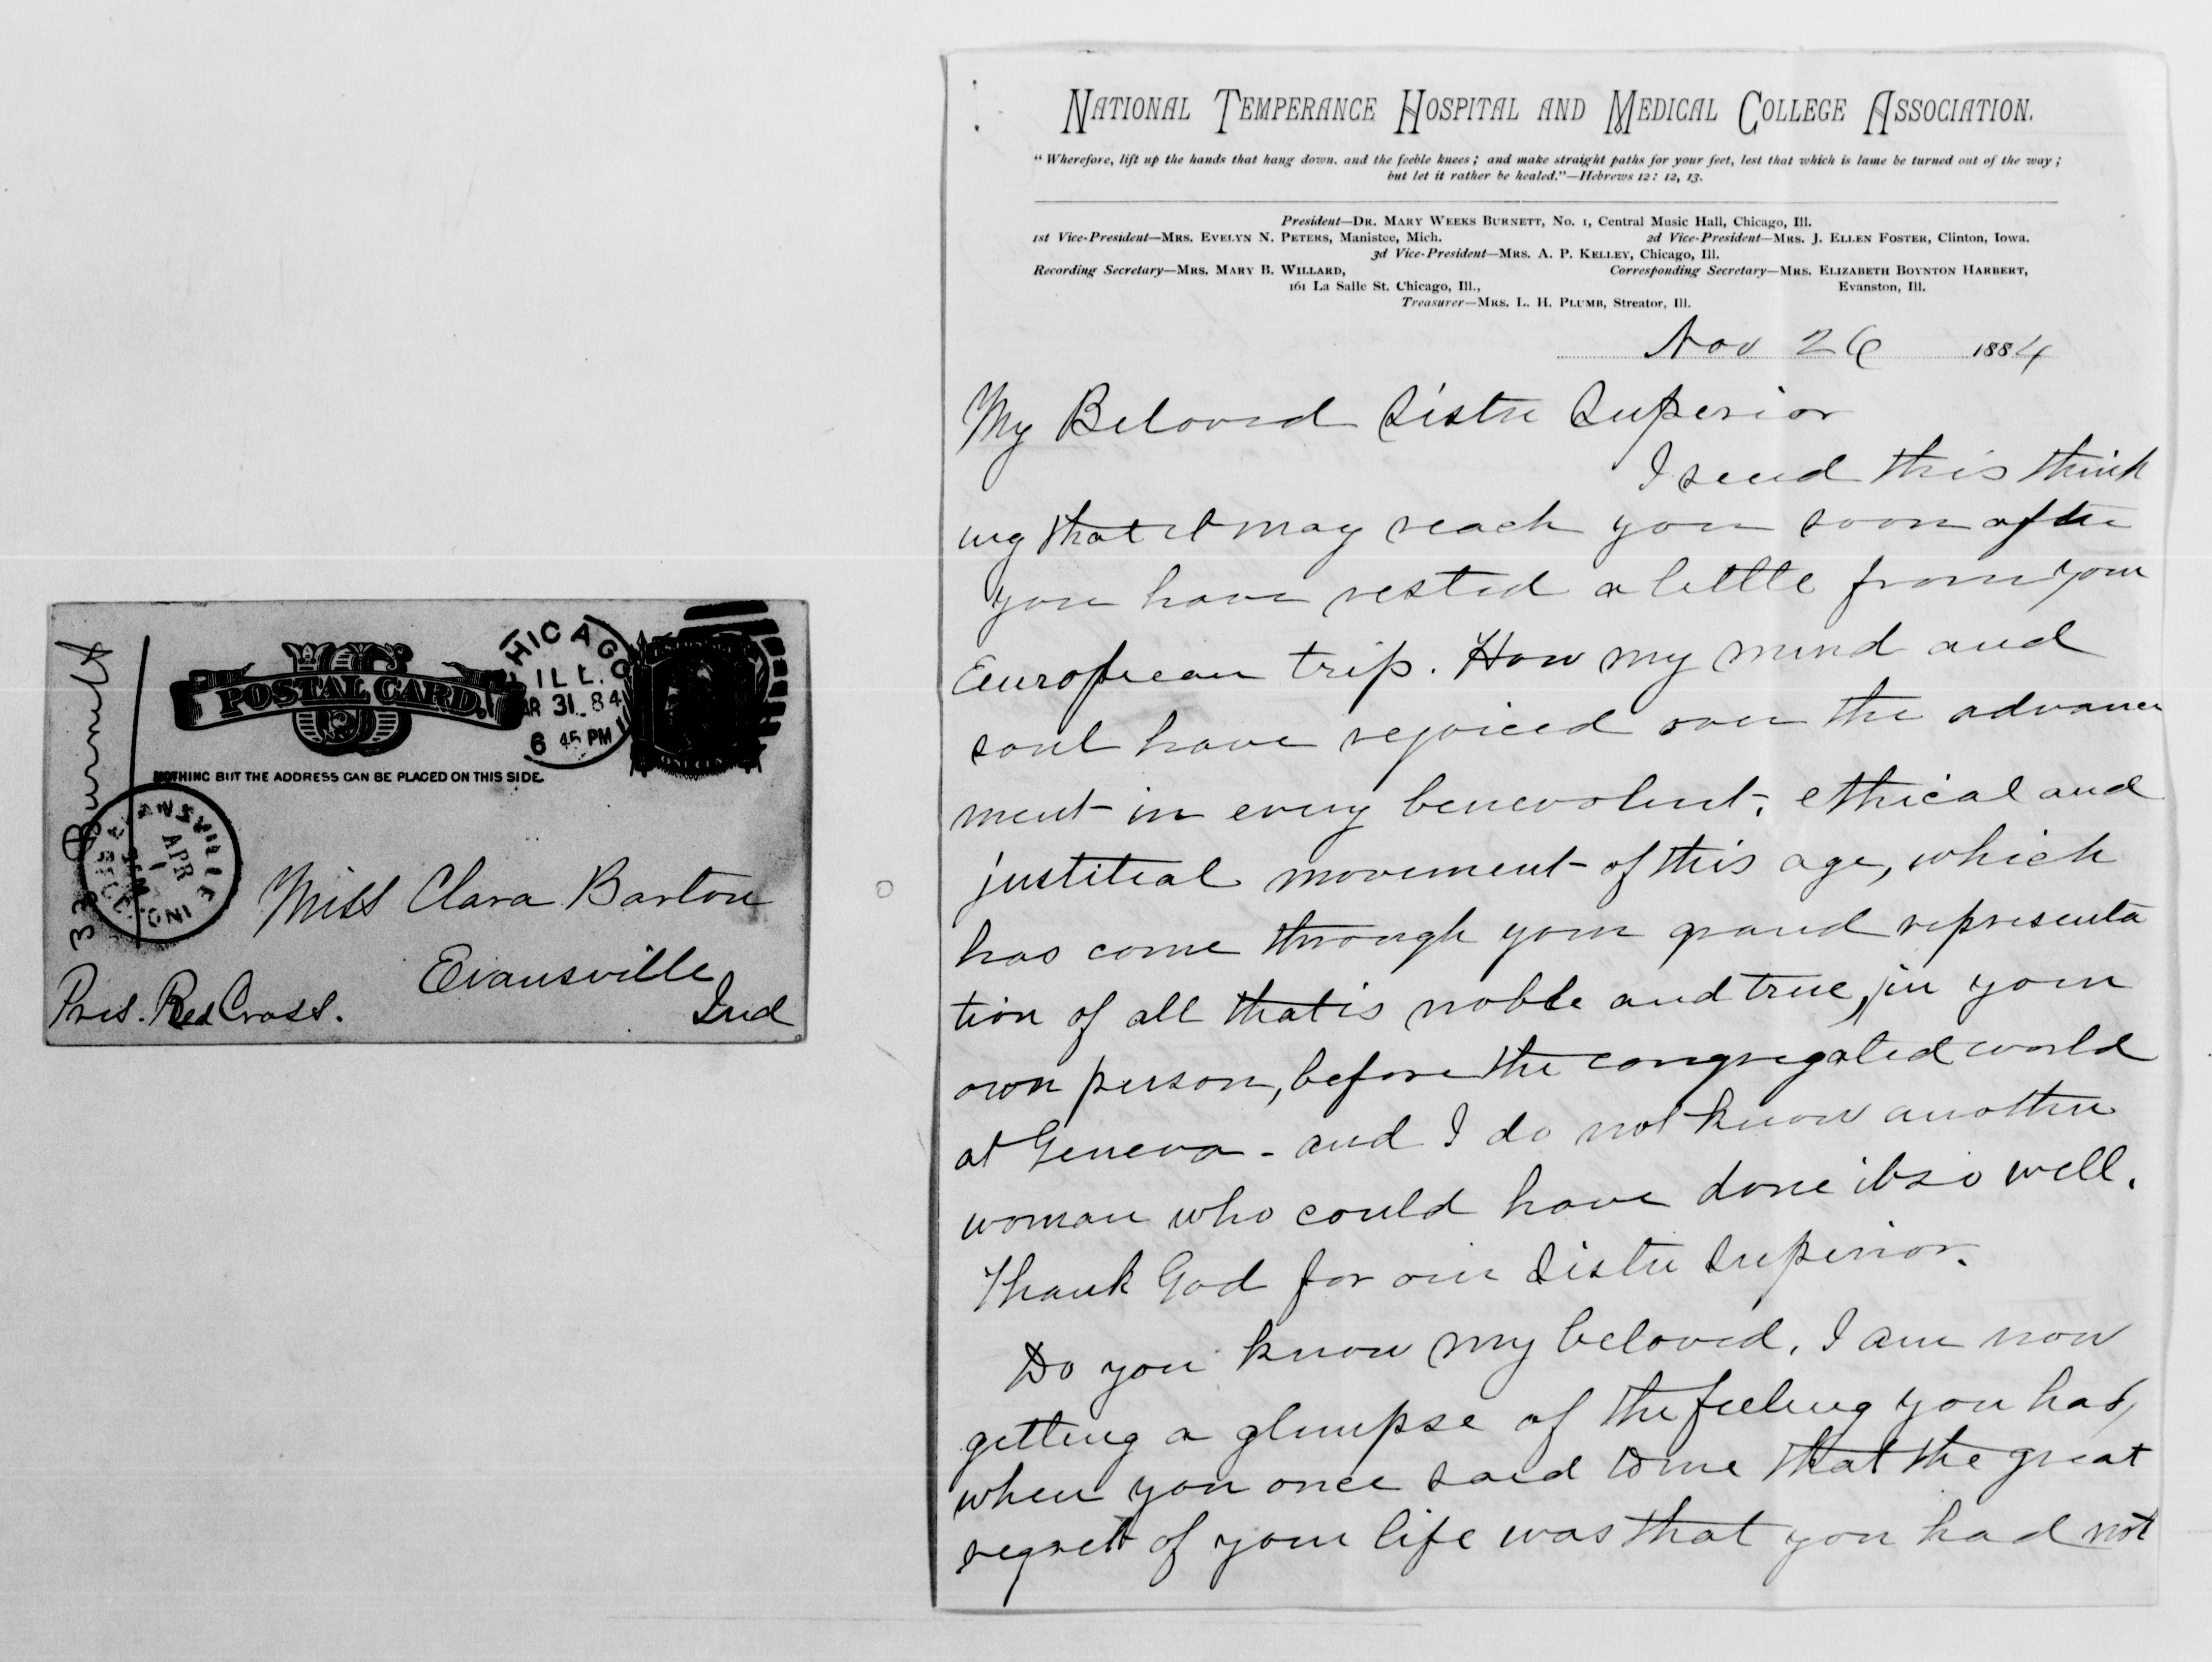 33 Burnett
POSTAL CARD.
CHICAGO
ILL.
AR 31 84
6 45 PM
NOTHING BUT THE ADDRESS CAN BE PLACED ON THIS SIDE.
EVANSVILLE
APR
1
IND.
Miss Clara Barton
Evansville
Pres. Red Cross.
Ind
NATIONAL TEMPERANCE HOSPITAL AND MEDICAL COLLEGE ASSOCIATION.
"Wherefore, lift up the hands that hang down, and the feeble knees; and make straight paths for your feet, lest that which is lame be turned out of the way;
but let it rather be healed."—Hebrews 12: 12, 13.
President—DR. MARY WEEKS BURNETT, No. 1, Central Music Hall, Chicago, Ill.
1st Vice-President—MRS. EVELYN N. PETERS, Manistee, Mich. 2d Vice-President—MRS. J. ELLEN FOSTER, Clinton, Iowa.
3d Vice-President—MRS. A. P. KELLEY, Chicago, Ill.
Recording Secretary—MRS. MARY B. WILLARD, Corresponding Secretary—MRS. ELIZABETH BOYNTON HARBERT,
161 La Salle St. Chicago, Ill., Evanston, Ill.
Treasurer—MRS. L. H. PLUMB, Streator, Ill.
Nov 26 1884
My Beloved Sister Superior
I send this think
ing that it may reach you soon after
you have rested a little from your
European trip. How my mind and
soul have rejoiced over the advance
ment in every benevolent, ethical and
justitial movement of this age, which
has come through your grand representa
tion of all that is noble and true, in your
own person, before the congregated world
at Geneva - and I do not know another
woman who could have done it so well.
Thank God for our Sister Superior.
Do you know my beloved, I am now
getting a glimpse of the feeling you had,
when you once said to me that the great
regret of your life was that you had not